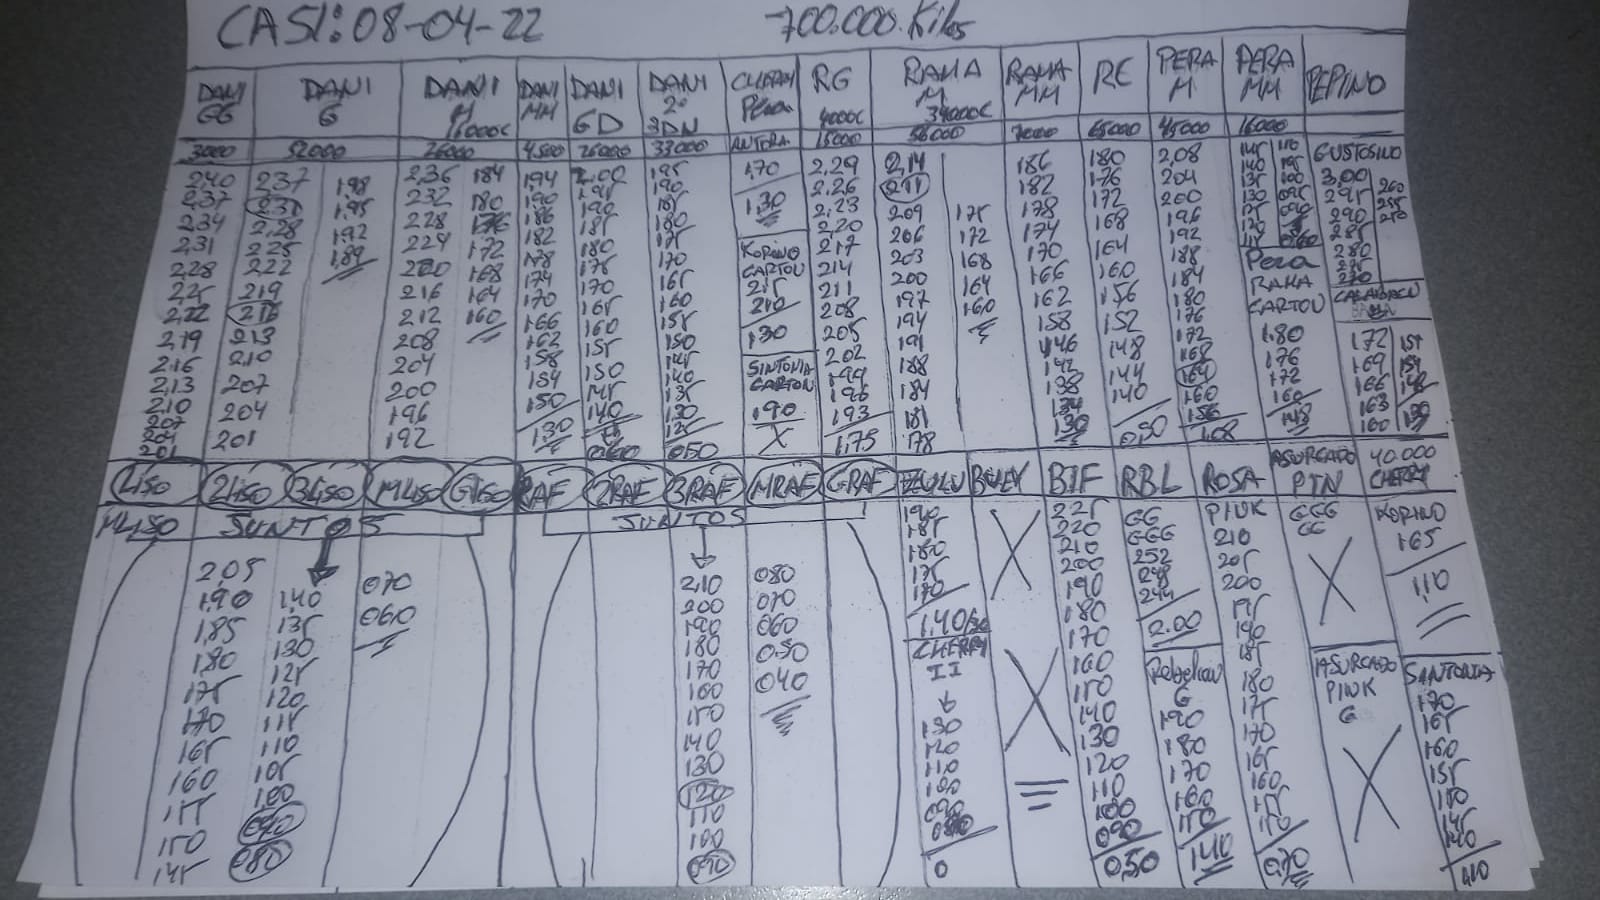 CASI: 08-04-22 700.000 Kilos
DANI GG
DANI G
DANI M 16000C
DANI MM
DANI GD
DANI 2ª 3DN
CHERRY Pera
RG 4000C
RAMA M 34000C
RAMA MM
RE
PERA M
PERA MM
PEPINO
3000 52000 26000 4500 26000 33000 15000 56000 7000 65000 45000 16000
240
237
234
231
228
225
222
219
216
213
210
207
204
201
237
231
228
225
222
219
216
213
210
207
204
201
198
195
192
189
236
232
228
224
220
216
212
208
204
200
196
192
184
180
176
172
168
164
160
194
190
186
182
178
174
170
166
162
158
154
150
130
2.00
195
190
185
180
175
170
165
160
155
150
145
140
195
190
185
180
175
170
165
160
155
150
145
140
135
130
125
050
170
130
KORINO
CARTON
215
210
130
SINTONIA
CARTON
190
X
2.29
2.26
2.23
2.20
217
214
211
208
205
202
199
196
193
1,75
2,14
211
209
206
203
200
197
194
191
188
184
181
178
175
172
168
164
160
186
182
178
174
170
166
162
158
146
142
138
134
130
180
176
172
168
164
160
156
152
148
144
140
0,50
2,08
204
200
196
192
188
184
180
176
172
168
164
160
156
1.08
Pera
RAMA
CARTON
1.80
176
172
160
148
GUSTOSINO
3,00
295
290
285
280
275
270
260
255
250
172
169
166
163
160
157
154
148
130
1LISO 2LISO 3LISO MLISO GLISO RAF 2RAF 3RAF MRAF GRAF ZULU BULEY BTF RBL ROSA ASURCADO PTN 40.000 CHERRY
MLISO JUNTOS
JUNTOS
205
190
1,85
180
175
170
165
160
155
150
145
140
135
130
125
120
115
110
105
100
090
080
070
060
210
200
190
180
170
160
150
140
130
120
110
100
090
080
070
060
050
040
190
185
180
175
170
1.40
CHERRY
II
130
120
110
100
090
080
0
X
X
225
220
210
200
190
180
170
160
150
140
130
120
110
100
090
0,50
GG
GGG
252
248
244
2.00
Rebelion
G
190
180
170
160
150
140
PINK
210
205
200
195
190
185
180
175
170
165
160
155
150
0,70
GGG
GG
X
ASURCADO
PINK
G
X
KORINO
165
1,10
SANTONIA
170
165
160
155
150
145
140
110